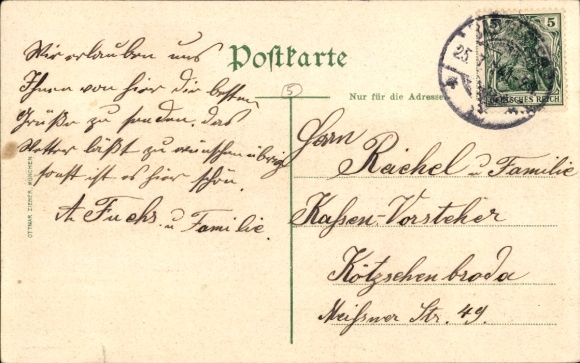 Postkarte
Nur für die Adresse
Wir erlauben uns
Ihnen von hier die besten
Grüße zu senden. das
Wetter läßt zu wünschen übrig
sonst ist es hier schön.
A. Fuchs u. Familie.
Herrn
Reichel u. Familie
Kassen-Vorsteher
Kötzschenbroda
Meißner Str. 49.
OTTMAR ZIEHER, MÜNCHEN
5
DEUTSCHES REICH
25.
5